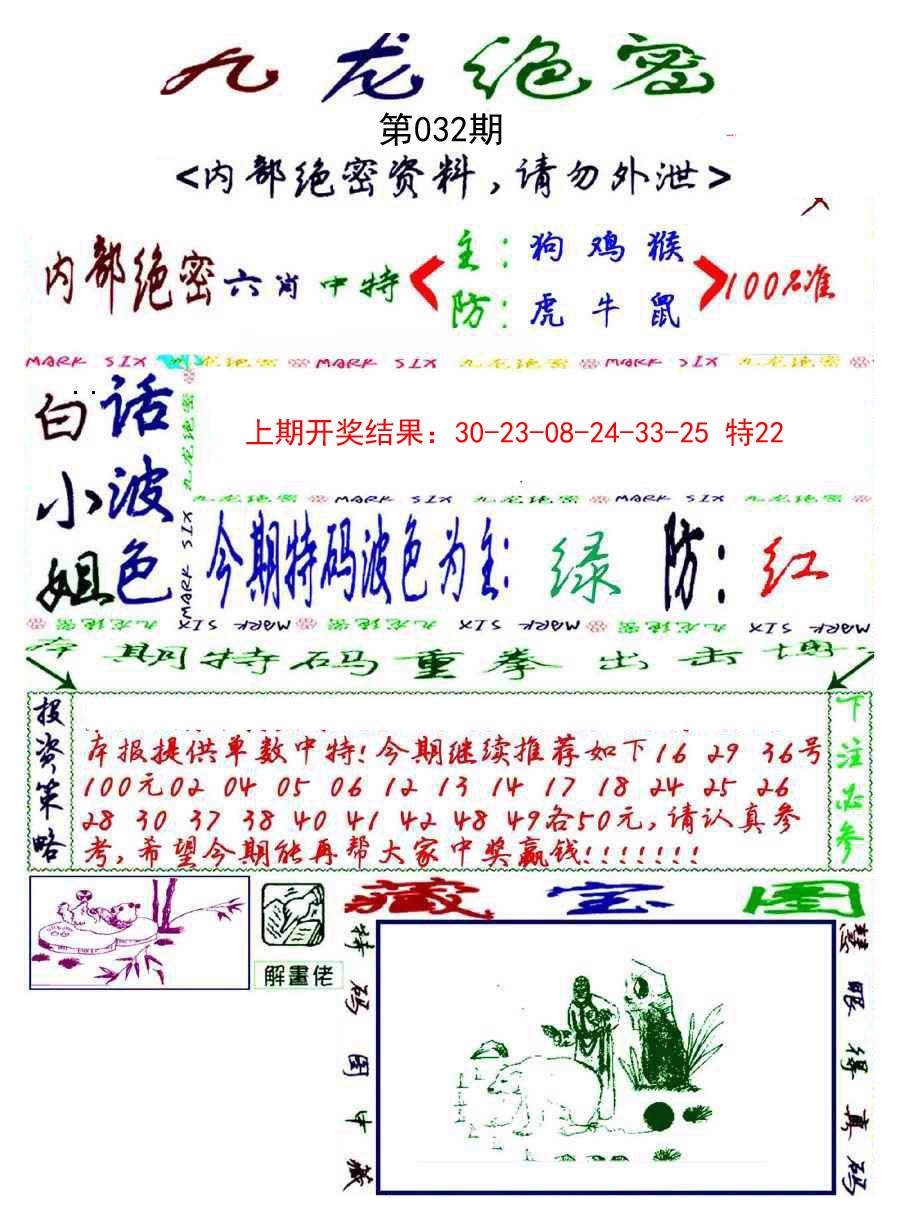 九龙绝密
第032期
<内部绝密资料,请勿外泄>
内部绝密六肖中特
主:狗鸡猴
防:虎牛鼠
100%准
MARK SIX 九龙绝密 MARK SIX 九龙绝密 MARK SIX 九龙绝密
白话
小波
姐色
九龙绝密
MARK SIX
上期开奖结果：30-23-08-24-33-25 特22
九龙绝密 MARK SIX 九龙绝密 MARK SIX 九龙绝密
今期特码波色为主:绿 防:红
九龙绝密 MARK SIX 九龙绝密 MARK SIX 九龙绝密 MARK SIX
本期特码重拳出击
投资策略
本报提供单数中特!今期继续推荐如下16 29 36号
100元02 04 05 06 12 13 14 17 18 24 25 26
28 30 37 38 40 41 42 48 49各50元,请认真参
考,希望今期能再帮大家中奖赢钱!!!!!!!
下注必参
解畫佬
藏宝图
特码图中藏
慧眼得真码